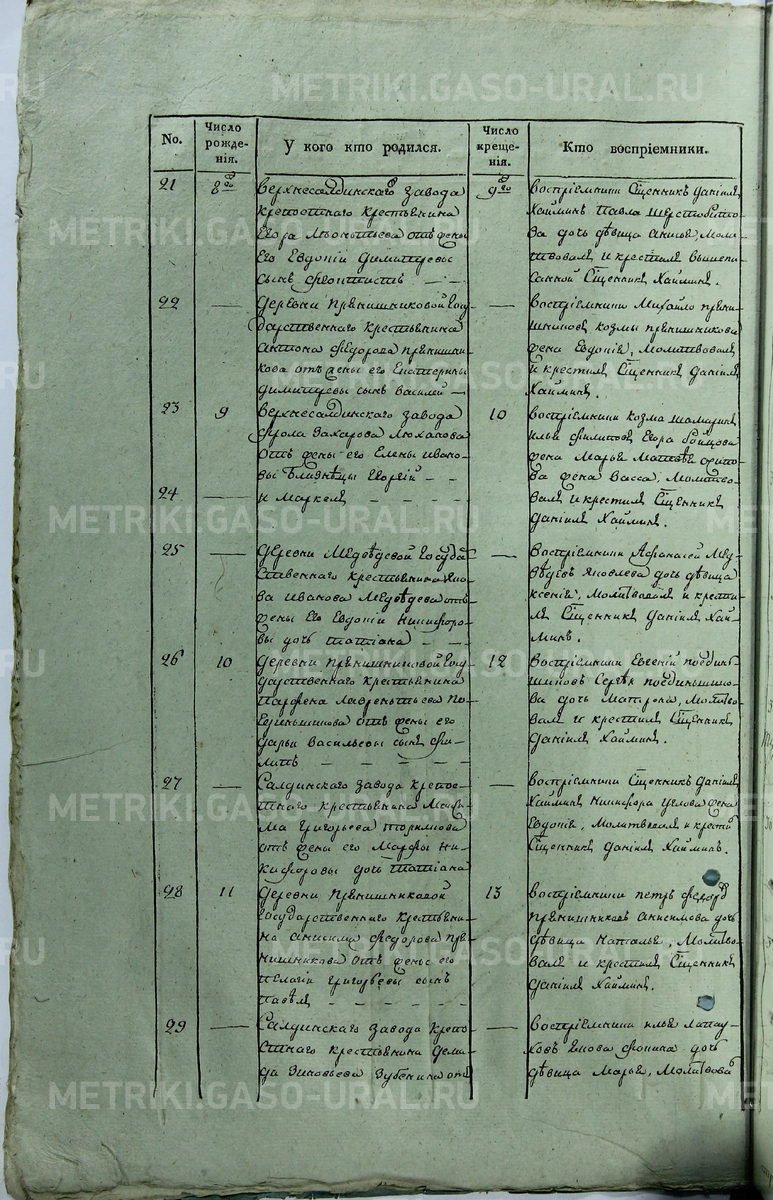 METRIKI.GASO-URAL.RU
No.
Число рожденія.
У кого кто родился.
Число крещенія.
Кто воспріемники.
21
8го
Верхнесалдинскаго завода
крепостнаго крестьянина
Егора Леонтьева отъ жены
Его Евдокіи Димитревы
сынъ Феоктистъ
9го
Воспріемники Сщенникъ Даніилъ
Хайминъ Павла Шерстобито-
ва дочь девица Анисья, Моли-
твовалъ и крестилъ вышепи-
санной Сщенникъ Хайминъ.
22
Деревни Прянишниковой Госу-
дарственнаго крестьянина
Антона Федорова Прянишни-
кова отъ жены его Екатерины
Димитревы сынъ Василей
Воспріемники Михайло Пряни-
шниковъ козмы Прянишникова
жена Евдокія, Молитвовалъ
и крестилъ Сщенникъ Даніилъ
Хайминъ.
23
9
Верхнесалдинскаго завода
Фрола Захарова
отъ жены его Елены Ивано-
вы Близнецы Георгій
10
Воспріемники козма
Илья Филиповъ, Егора
жена Марья Матвея
ва жена Васса, Молитво-
валъ и крестилъ Сщенникъ
Даніилъ Хайминъ.
24
и Маркелъ
25
Деревни Медведевой Госуда-
рственнаго крестьянина Яко-
ва Иванова Медведева отъ
жены Его Евдокіи Никифоро-
вы дочь Татіана
Воспріемники Афанасей Мед-
ведевъ Яковлева дочь девица
Ксенія, Молитвовалъ и крести-
лъ Сщенникъ Даніилъ Хай-
минъ.
26
10
Деревни Прянишниковой Госу-
дарственнаго крестьянина
Парфена Лаврентьева По-
единьшикова отъ жены его
Дарьи Васильевы сынъ Фи-
липъ
12
Воспріемники Евгеній Поединь-
шиковъ Сергея Поединьшико-
ва дочь Матрона, Молитво-
валъ и крестилъ Сщенникъ
Даніилъ Хайминъ.
27
Салдинскаго завода крепос-
тнаго крестьянина
Григорьева
отъ жены его Марфы Ни-
кифоровы дочь Татіана
Воспріемники Сщенникъ Даніилъ
Хайминъ Никифора жена
Евдокія, Молитвовалъ и крести
Сщенникъ Даніилъ Хайминъ.
28
11
Деревни Прянишниковой
Государственнаго крестьяни-
на Анисима Федорова Пря-
нишникова отъ жены его
Пелагіи Григорьевы сынъ
Павелъ
13
Воспріемники Петръ Федоръ
Прянишниковъ Анисимова дочь
девица Наталья, Молитво-
валъ и крестилъ Сщенникъ
Даніилъ Хайминъ.
29
Салдинскаго завода крепо-
стнаго крестьянина Деми-
да Зиновьева Зубенина отъ
Воспріемники Илья Лапау-
ховъ Якова Фокина дочь
девица Марья, Молитвова